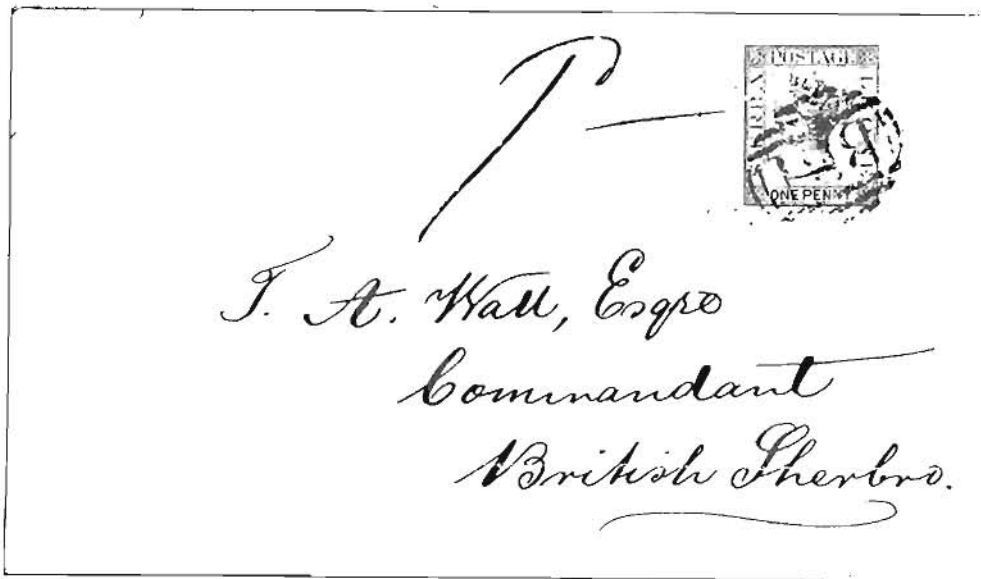 POSTAGE
ONE PENNY
T. A. Wall, Esqre
Commandant
British Sherbro.